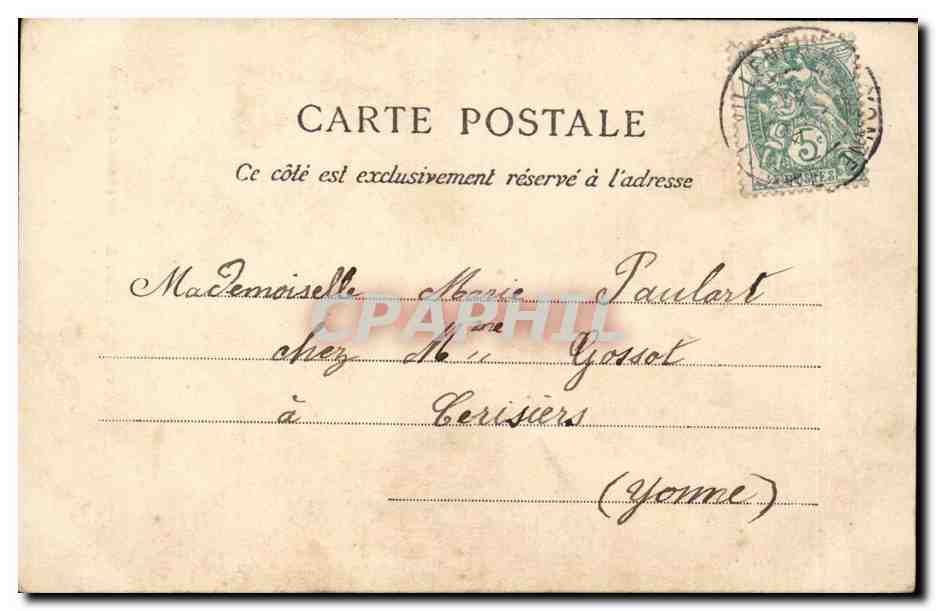 CARTE POSTALE
Ce côté est exclusivement réservé à l'adresse
5c
POSTES
YONNE
Mademoiselle Marie Paulart
chez Mme Gossot
à Cerisiers
(Yonne)
CPAPHIL